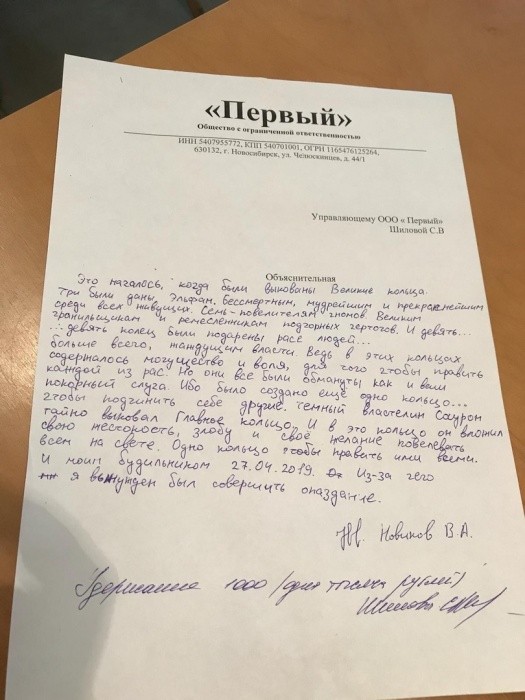 «Первый»
Общество с ограниченной ответственностью
ИНН 5407955772, КПП 540701001, ОГРН 1165476125264,
630132, г. Новосибирск, ул. Челюскинцев, д. 44/1
Управляющему ООО « Первый»
Шиловой С.В
Объяснительная
Это началось, когда были выкованы Великие кольца.
Три были даны, Эльфам, бессмертным, мудрейшим и прекраснейшим
среди всех живущих. Семь-повелителям гномов Великим
гранильщикам и ремесленникам подгорных чертогов. И девять...
... девять колец были подарены расе людей...
больше всего, жаждущим власти. Ведь в этих кольцах
содержалось могущество и воля, для того чтобы править
каждой из рас. Но они все были обмануты, как и ваш
покорный слуга. Ибо было создано ещё одно кольцо...
чтобы подчинить себе другие. Темный властелин Саурон
тайно выковал Главное кольцо. И в это кольцо он вложил
свою жестокость, злобу и своё желание повелевать
всем на свете. Одно кольцо чтобы править ими всеми.
И моим будильником 27.04.2019. Из-за чего
я вынужден был совершить опаздание.
Новиков В.А.
Удержание 1000 (одна тысяча рублей)
Шилова С.В.